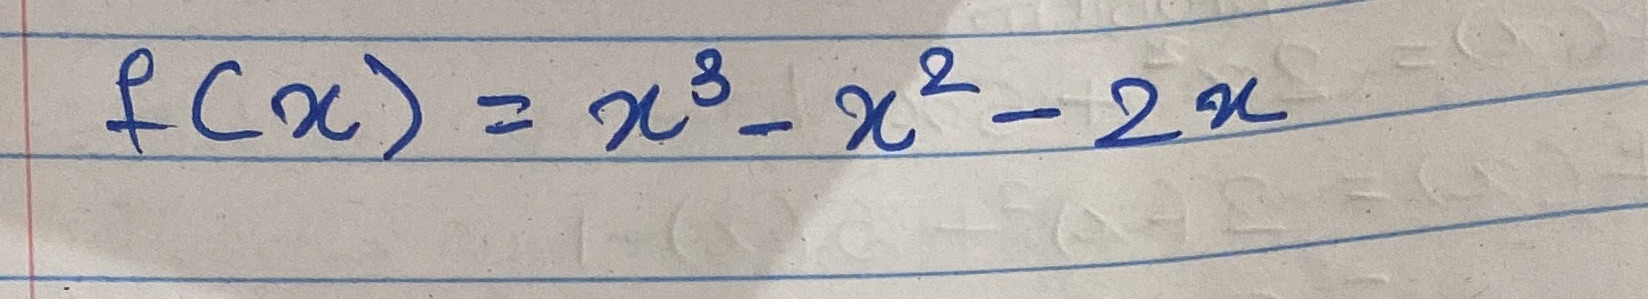 f(x) = x³ - x² - 2x